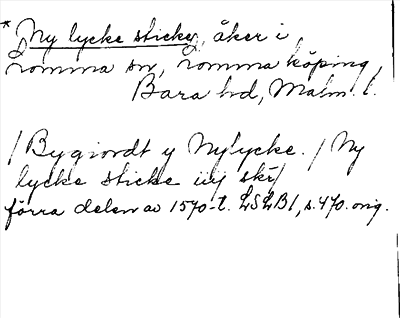 * Ny lycke sticke, åker i
Lomma sn, Lomma köping,
Bara hd, Malm. l.
/ Bygiordt y Nylycke. / Ny
lycke sticke iiij skr/
förra delen av 1570-t. LSLB1, s. 470. orig.